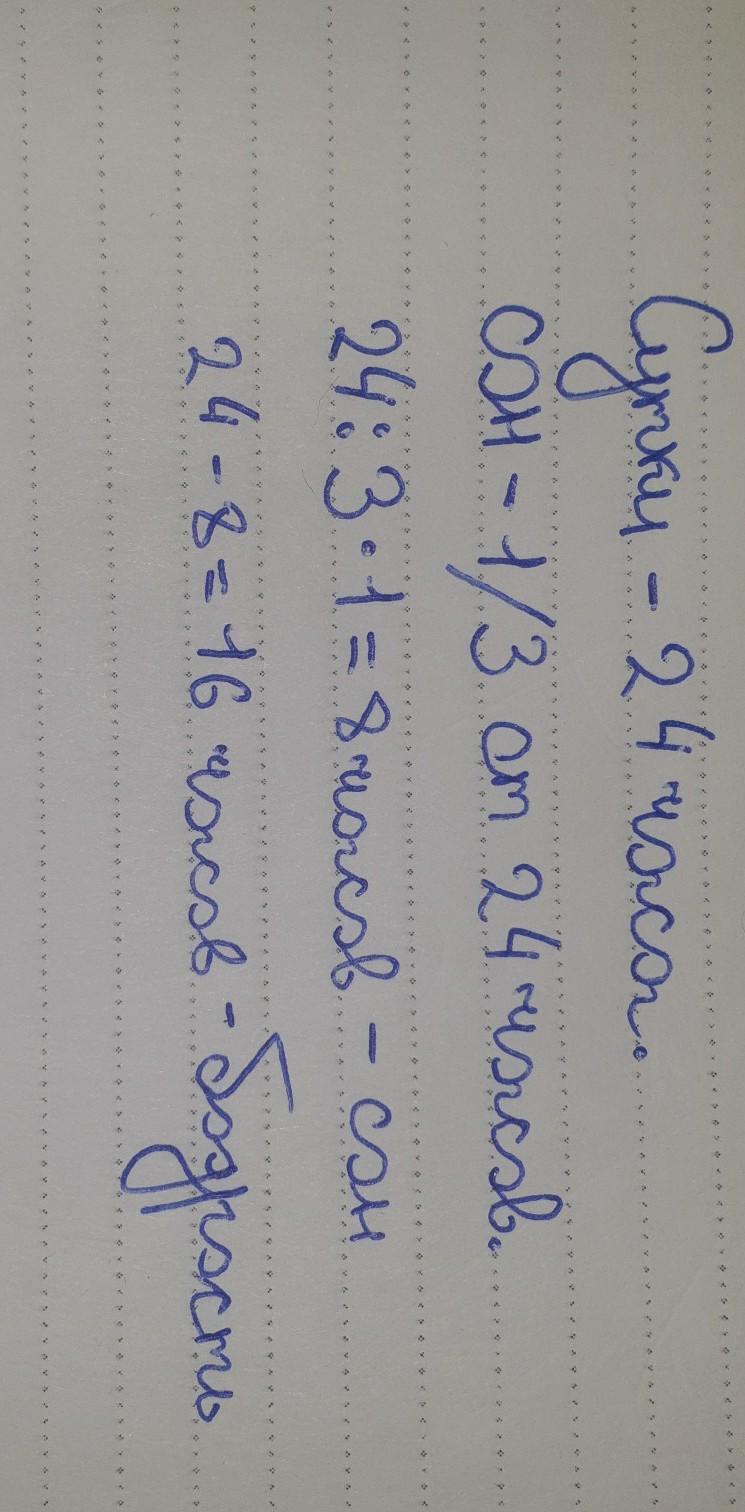 Сутки - 24 часа.
сон - 1/3 от 24 часов.
24:3·1=8 часов - сон
24-8=16 часов - бодрость